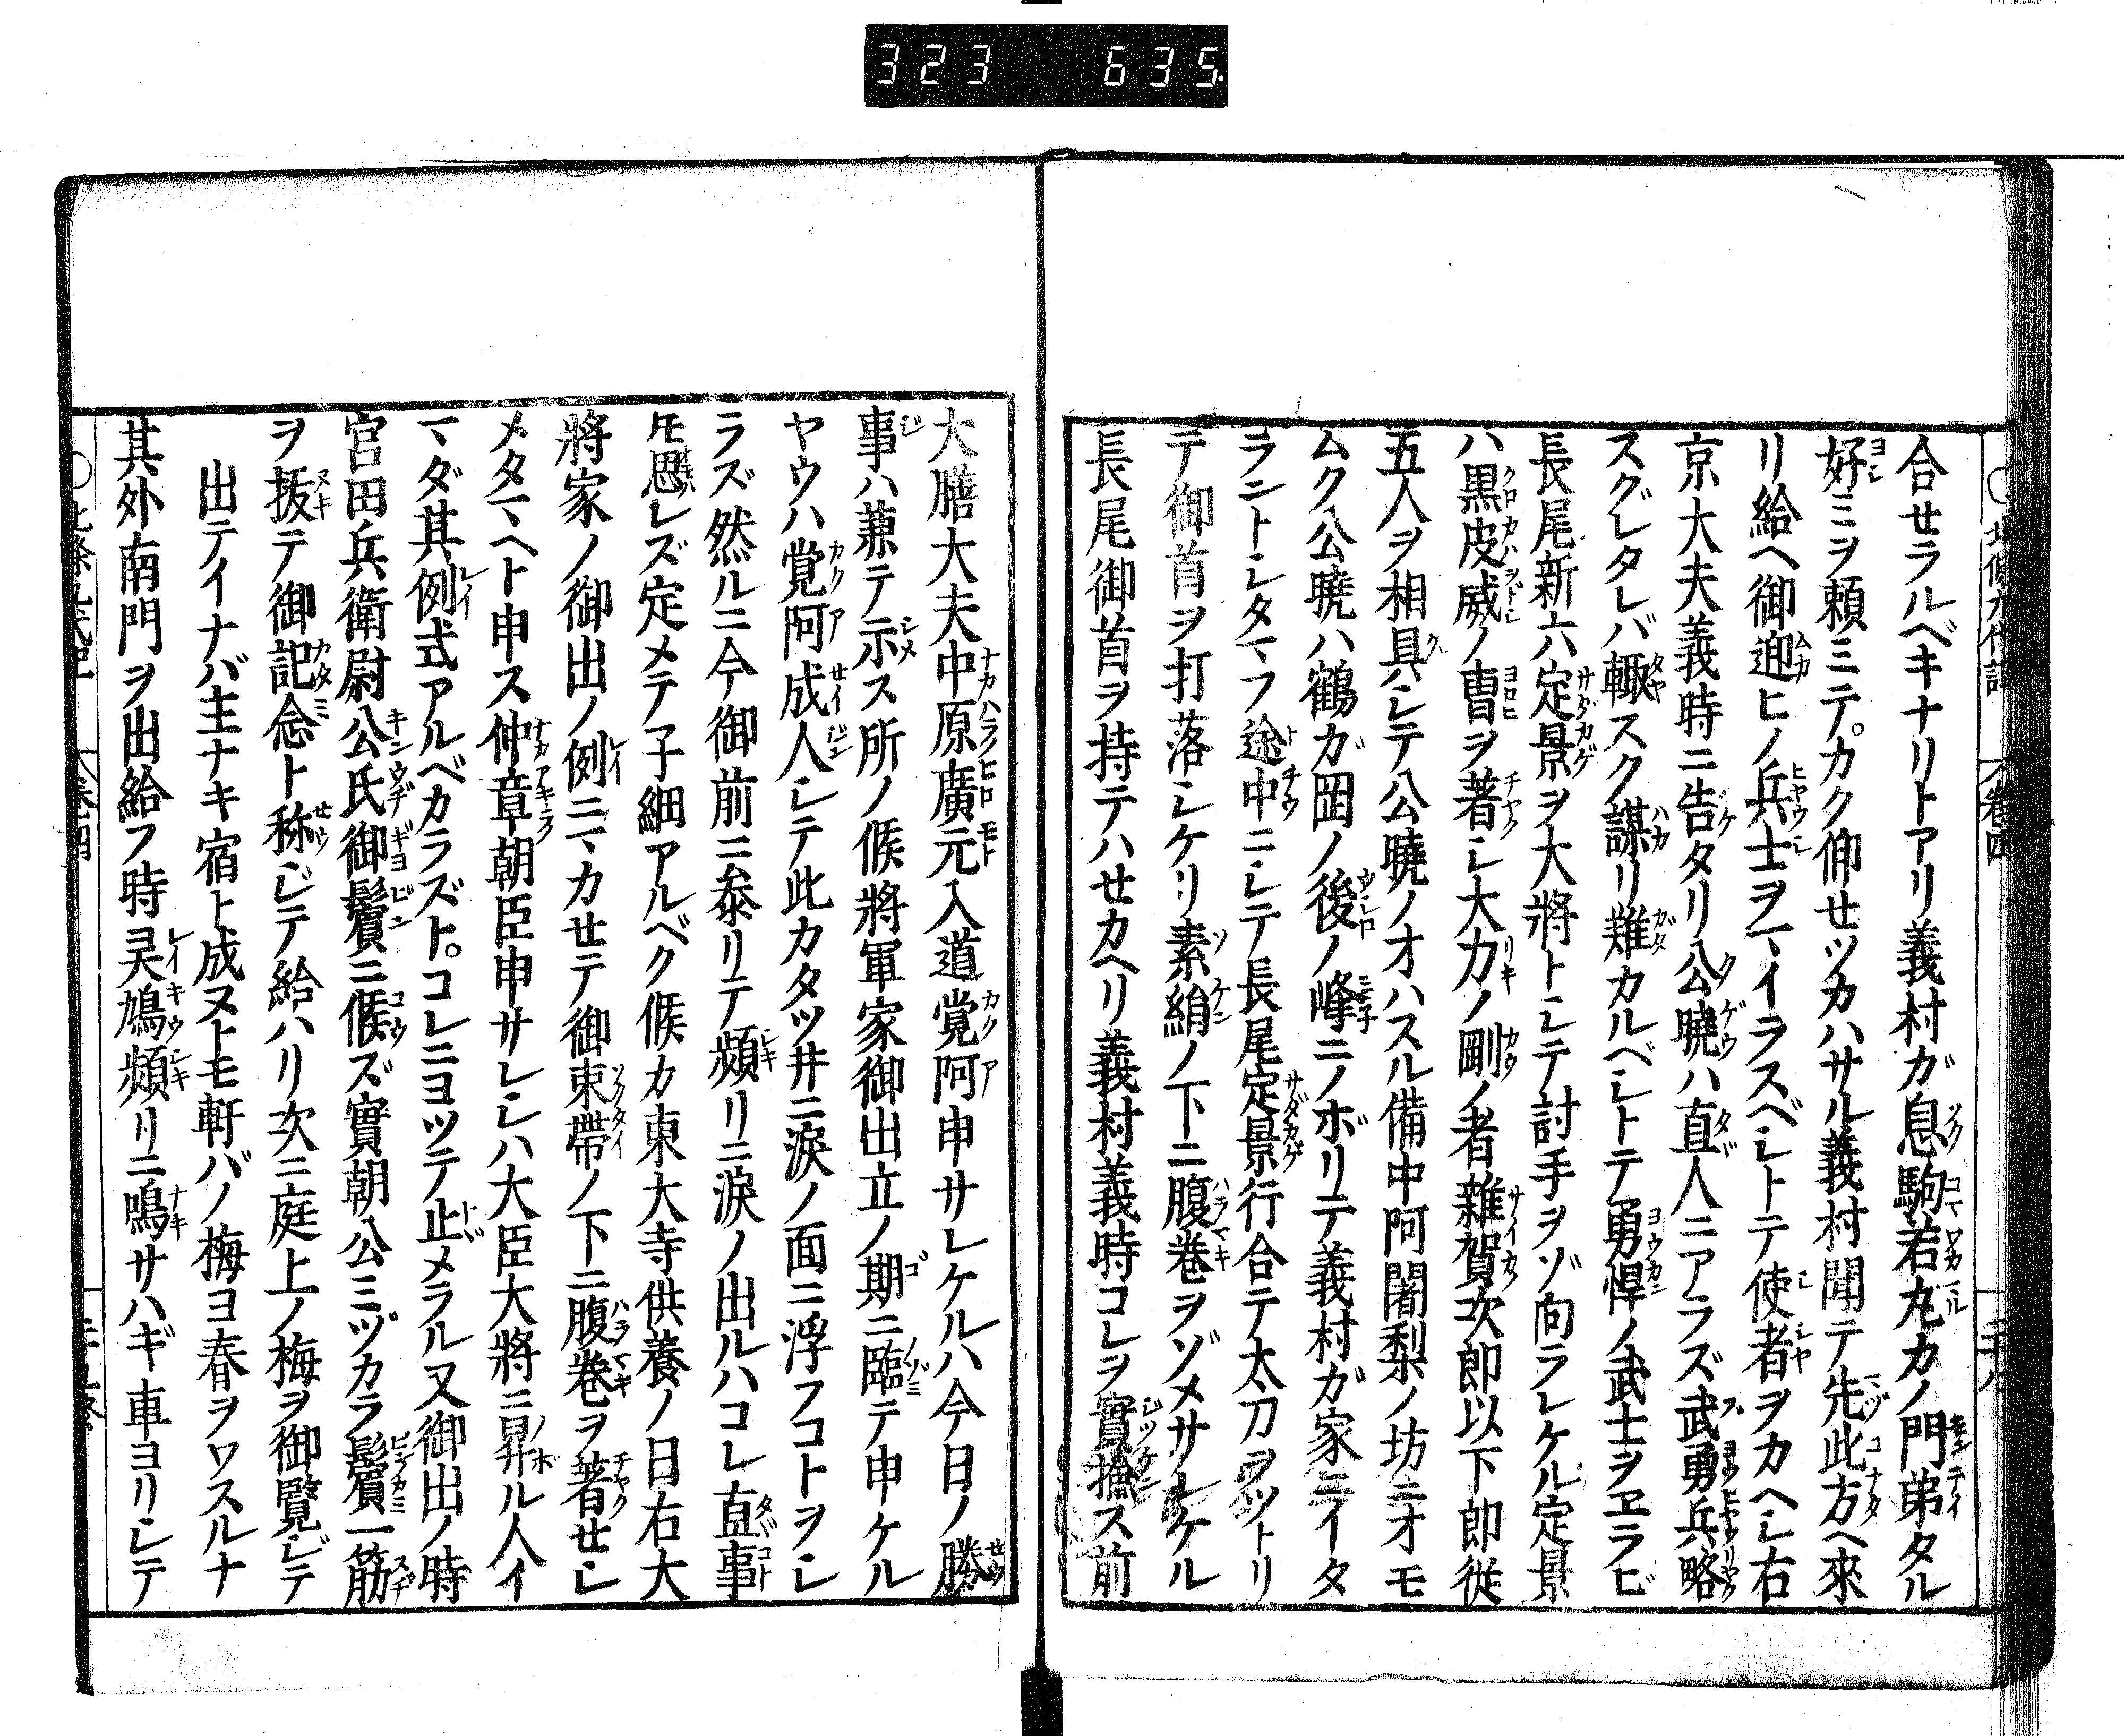 323 635
合セラルベキナリトアリ義村ガ息駒若丸カノ門弟タル
好ミヲ頼ミテ。カク仰セツカハサル義村聞テ先此方ヘ來
リ給ヘ御迎ヒノ兵士ヲマイラスベシトテ使者ヲカヘシ右
京大夫義時ニ告タリ公曉ハ直人ニアラズ武勇兵略
スグレタレバ輙スク謀リ難カルベシトテ勇悍ノ武士ヲヱラビ
長尾新六定景ヲ大將トシテ討手ヲゾ向ラレケル定景
ハ黒皮威ノ冑ヲ著シ大力ノ剛ノ者雜賀次郎以下郎從
五人ヲ相具シテ公曉ノオハスル備中阿闍梨ノ坊ニオモ
ムク公曉ハ鶴ガ岡ノ後ノ峰ニノボリテ義村ガ家ニイタ
ラントシタマフ途中ニシテ長尾定景行合テ太刀ヲツトリ
テ御首ヲ打落シケリ素絹ノ下ニ腹巻ヲゾメサレケル
長尾御首ヲ持テハセカヘリ義村義時コレヲ實撿ス前
大膳大夫中原廣元入道覚阿申サレケルハ今日ノ勝
事ハ兼テ示ス所ノ候將軍家御出立ノ期ニ臨テ申ケル
ヤウハ覚阿成人シテ此カタツ井ニ淚ノ面ニ浮フコトヲシ
ラズ然ルニ今御前ニ參リテ頻リニ淚ノ出ルハコレ直事
圧思レズ定メテ子細アルベク候カ東大寺供養ノ日右大
將家ノ御出ノ例ニマカセテ御束帶ノ下ニ腹巻ヲ著セシ
メタマヘト申ス仲章朝臣申サレシハ大臣大將ニ昇ル人イ
マダ其例式アルベカラズト。コレニヨツテ止メラル又御出ノ時
宮田兵衛尉公氏御鬢ニ候ズ實朝公ミヅカラ鬢一筋
ヲ拔テ御記念ト称ジテ給ハリ次ニ庭上ノ梅ヲ御覽ジテ
出テイナバ主ナキ宿ト成ヌトモ軒バノ梅ヨ春ヲワスルナ
其外南門ヲ出給フ時灵鳩頻リニ鳴サハギ車ヨリシテ